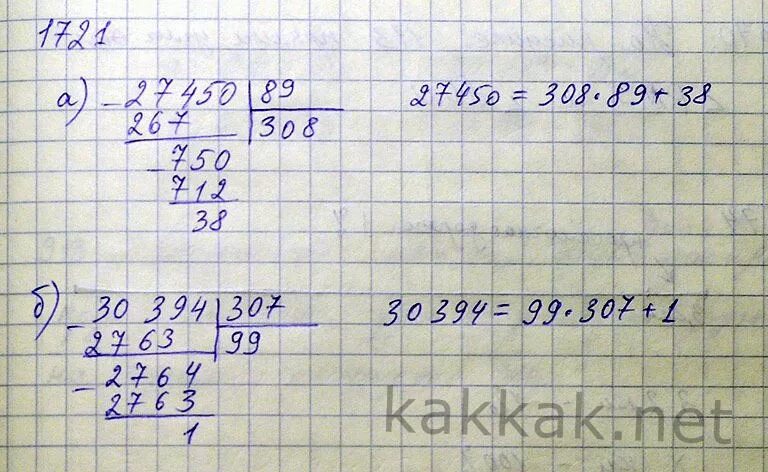 1721
а) - 27450 | 89    27450 = 308 · 89 + 38
267 | 308
- 750
712
38
б) - 30 394 | 307    30 394 = 99 · 307 + 1
2763 | 99
- 2764
2763
1
kakkak.net